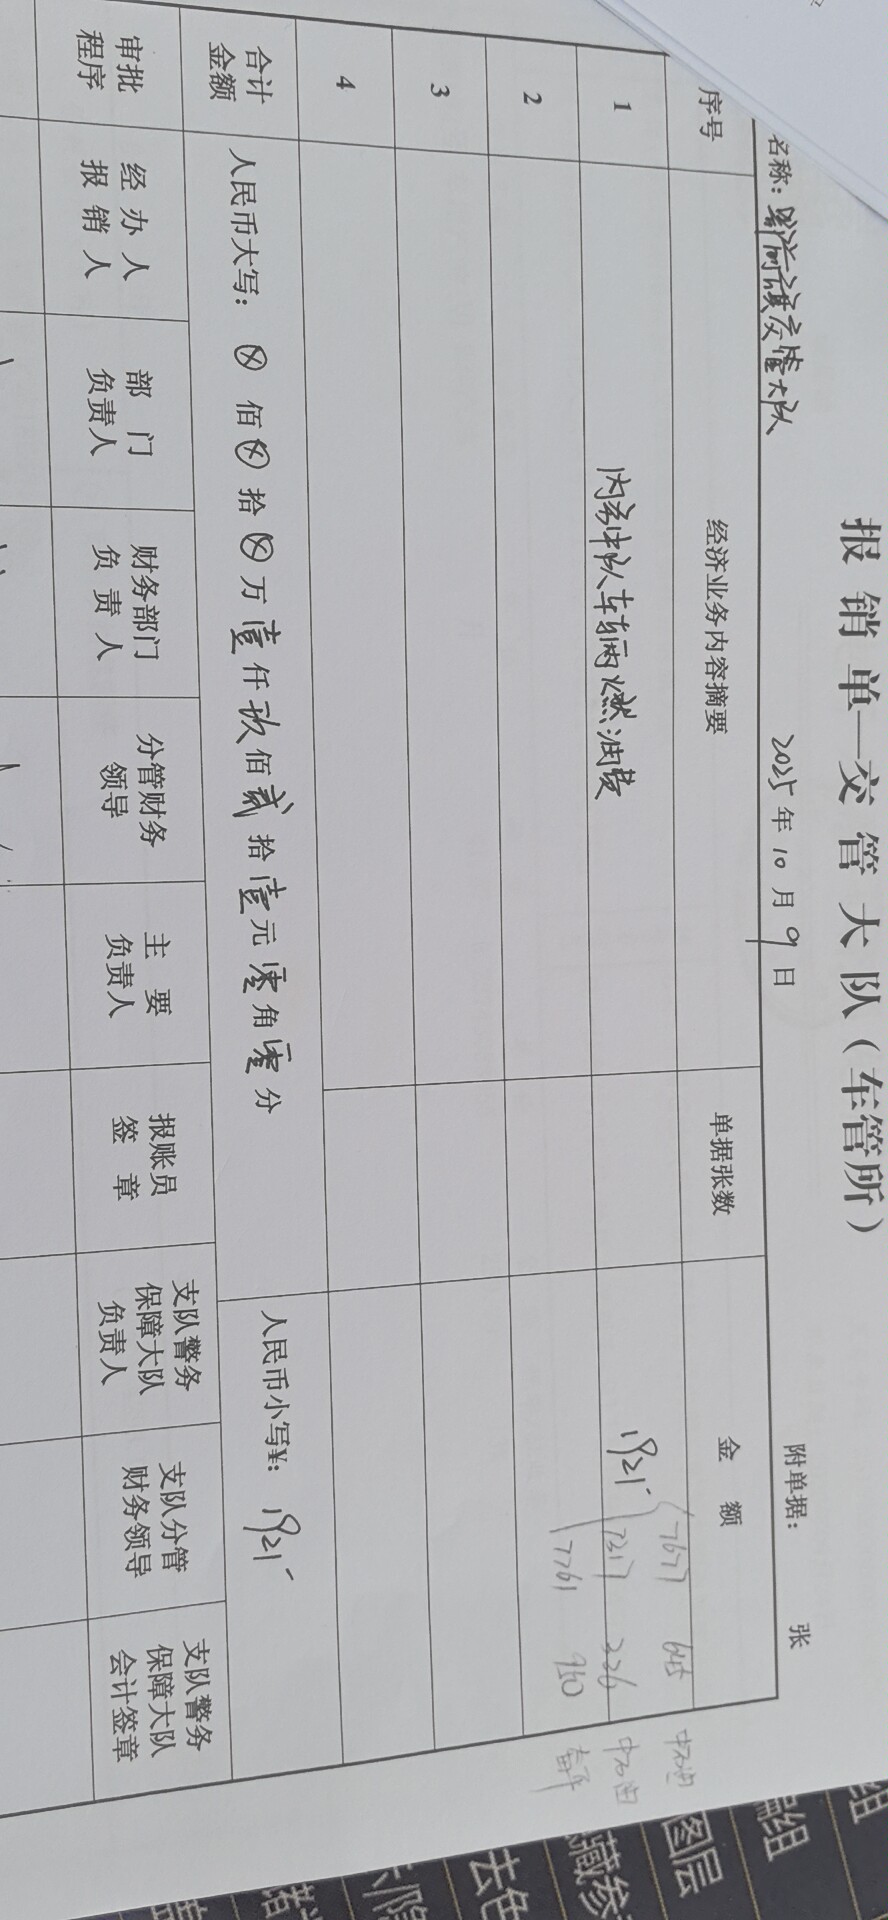 报销单—交管大队（车管所）
名称：察前旗交管大队 2025年10月9日 附单据： 张
序号 经济业务内容摘要 单据张数 金额
1 内勤中队车辆燃油费 1921-
7677 645 中石油
7317 326 中石油
7761 950
2
3
4
合计金额 人民币大写：⊗佰⊗拾⊗万壹仟玖佰贰拾壹元零角零分 人民币小写¥：1921-
审批程序 经办人报销人 部门负责人 财务部门负责人 分管财务领导 主要负责人 报账员签章 支队警务保障大队负责人 支队分管财务领导 支队警务保障大队会计签章
编组
图层
藏参
去色